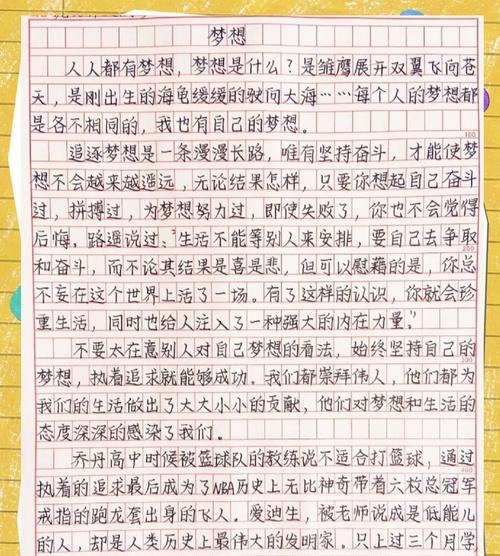 梦想
人人都有梦想，梦想是什么？是雏鹰展开双翼飞向苍
天，是刚出生的海龟缓缓的驶向大海……每个人的梦想都
是各不相同的，我也有自己的梦想。
100
追逐梦想是一条漫漫长路，唯有坚持奋斗，才能使梦
想不会越来越遥远，无论结果怎样，只要你想起自己奋斗
过，拼搏过，为梦想努力过，即使失败了，你也不会觉得
后悔。路遥说过："生活不能等别人来安排，要自己去争取
200
和奋斗，而不论其结果是喜是悲，但可以慰藉的是，你总
不妄在这个世界上活了一场。有了这样的认识，你就会珍
重生活，同时也给人注入了一种强大的内在力量。"
不要太在意别人对自己梦想的看法，始终坚持自己的
300
梦想，执着追求就能够成功。我们都崇拜伟人，他们都为
我们的生活做出了大大小小的贡献，他们对梦想和生活的
态度深深的感染了我们。
乔丹高中时候被篮球队的教练说不适合打篮球，通过
400
执着的追求最后成为了NBA历史上无比神奇带着六枚总冠军
戒指的跑龙套出身的飞人。爱迪生，被老师说成是低能儿
的人，却是人类历史上最伟大的发明家。只上过三个月学